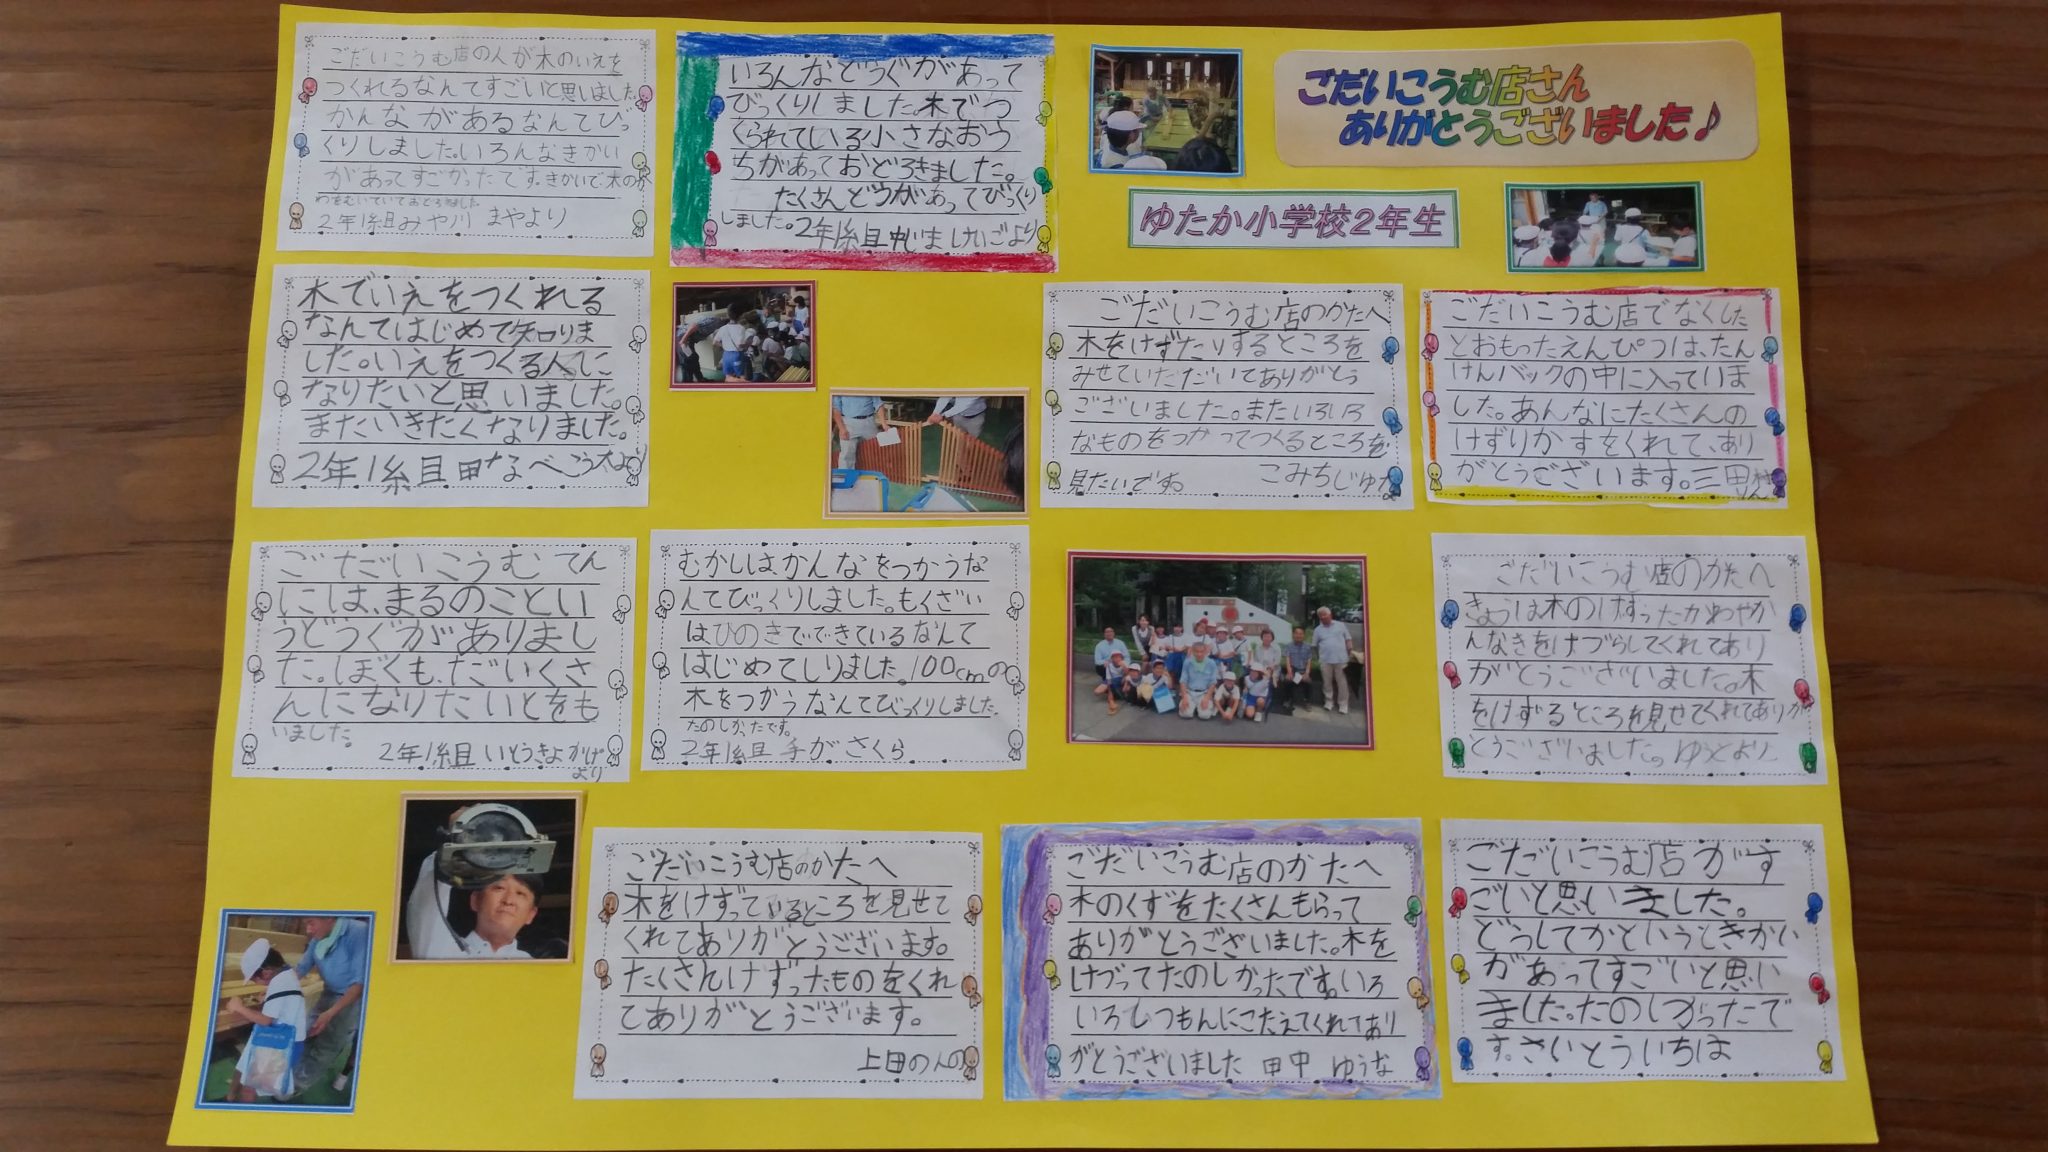 ごだいこうむ店さん
ありがとうございました♪
ゆたか小学校2年生
ごだいこうむ店の人が木のいえを
つくれるなんてすごいと思いました。
かんながあるなんてびっ
くりしました。いろんなきかい
があってすごかったです。きかいで、木のか
わをむいていておどろきました。
2年1組みや川 まやより
いろんなどうぐがあって
びっくりしました。木でつ
くられている小さなおう
ちがあっておどろきました。
たくさんどうがあってびっくり
しました。2年1組中じま けいごより
木でいえをつくれる
なんてはじめて知りま
した。いえをつくる人に
なりたいと思いました。
またいきたくなりました。
2年1組田なべこう
ごだいこうむ店のかたへ
木をけずたりするところを
みせていただいてありがとう
ございました。またいろいろ
なものをつかってつくるところを
見たいです。 こみちじゅ
ごだいこうむ店でなくした
とおもったえんぴつは、たん
けんバックの中に入っていま
した。あんなにたくさんの
けずりかすをくれて、あり
がとうございます。三田
ごだいこうむてん
には、まるのことい
うどうぐがありまし
た。ぼくも、だいくさ
んになりたいとをも
いました。
2年1組 いとうきよかげ
より
むかしは、かんなをつかうな
んてびっくりしました。もくざい
はひのきでできているなんて
はじめてしりました。100cmの
木をつかうなんてびっくりしました。
たのしかったです。
2年1組 手がさくら
ごだいこうむ店のかたへ
きょうは木のけずったかわやか
んなきをけづらしてくれてあり
がとうございました。木
をけずるところを見せてくれてありが
とうございました。ゆうとより
ごだいこうむ店のかたへ
木をけずっているところを見せて
くれてありがとうございます。
たくさんけずったものをくれ
てありがとうございます。
上田のんの
ごだいこうむ店のかたへ
木のくずをたくさんもらって
ありがとうございました。木を
けづってたのしかったです。いろ
いろしつもんにこたえてくれてあり
がとうございました 田中 ゆうな
ごだいこうむ店がす
ごいと思いました。
どうしてかというときかい
があってすごいと思い
ました。たのしかったで
す。さいとういちは